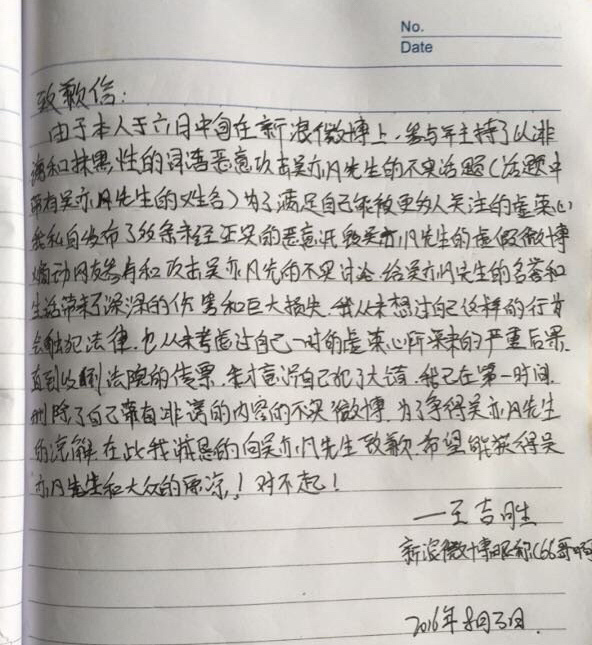 No.
Date
致歉信:
由于本人于六月中旬在新浪微博上,参与并主持了以诽
谤和抹黑性的词语恶意攻击吴亦凡先生的不实话题(话题中
带有吴亦凡先生的姓名)为了满足自己能被更多人关注的虚荣心
我私自发布了数条未经证实的恶意诋毁吴亦凡先生的虚假微博
煽动网友参与和攻击吴亦凡先的不实讨论.给吴亦凡先生的名誉和
生活带来了深深的伤害和巨大损失.我从未想过自己这样的行为
会触犯法律.也从未考虑过自己一时的虚荣心所带来的严重后果.
直到收到法院的传票.我才意识自己犯了大错.我已在第一时间.
删除了自己带有诽谤的内容的不实微博.为了争得吴亦凡先生
的谅解.在此我诚恳的向吴亦凡先生致歉.希望能获得吴
亦凡先生和大众的原谅!对不起!
—王吉胜
新浪微博昵称(66哥啊
2016年8月3日.